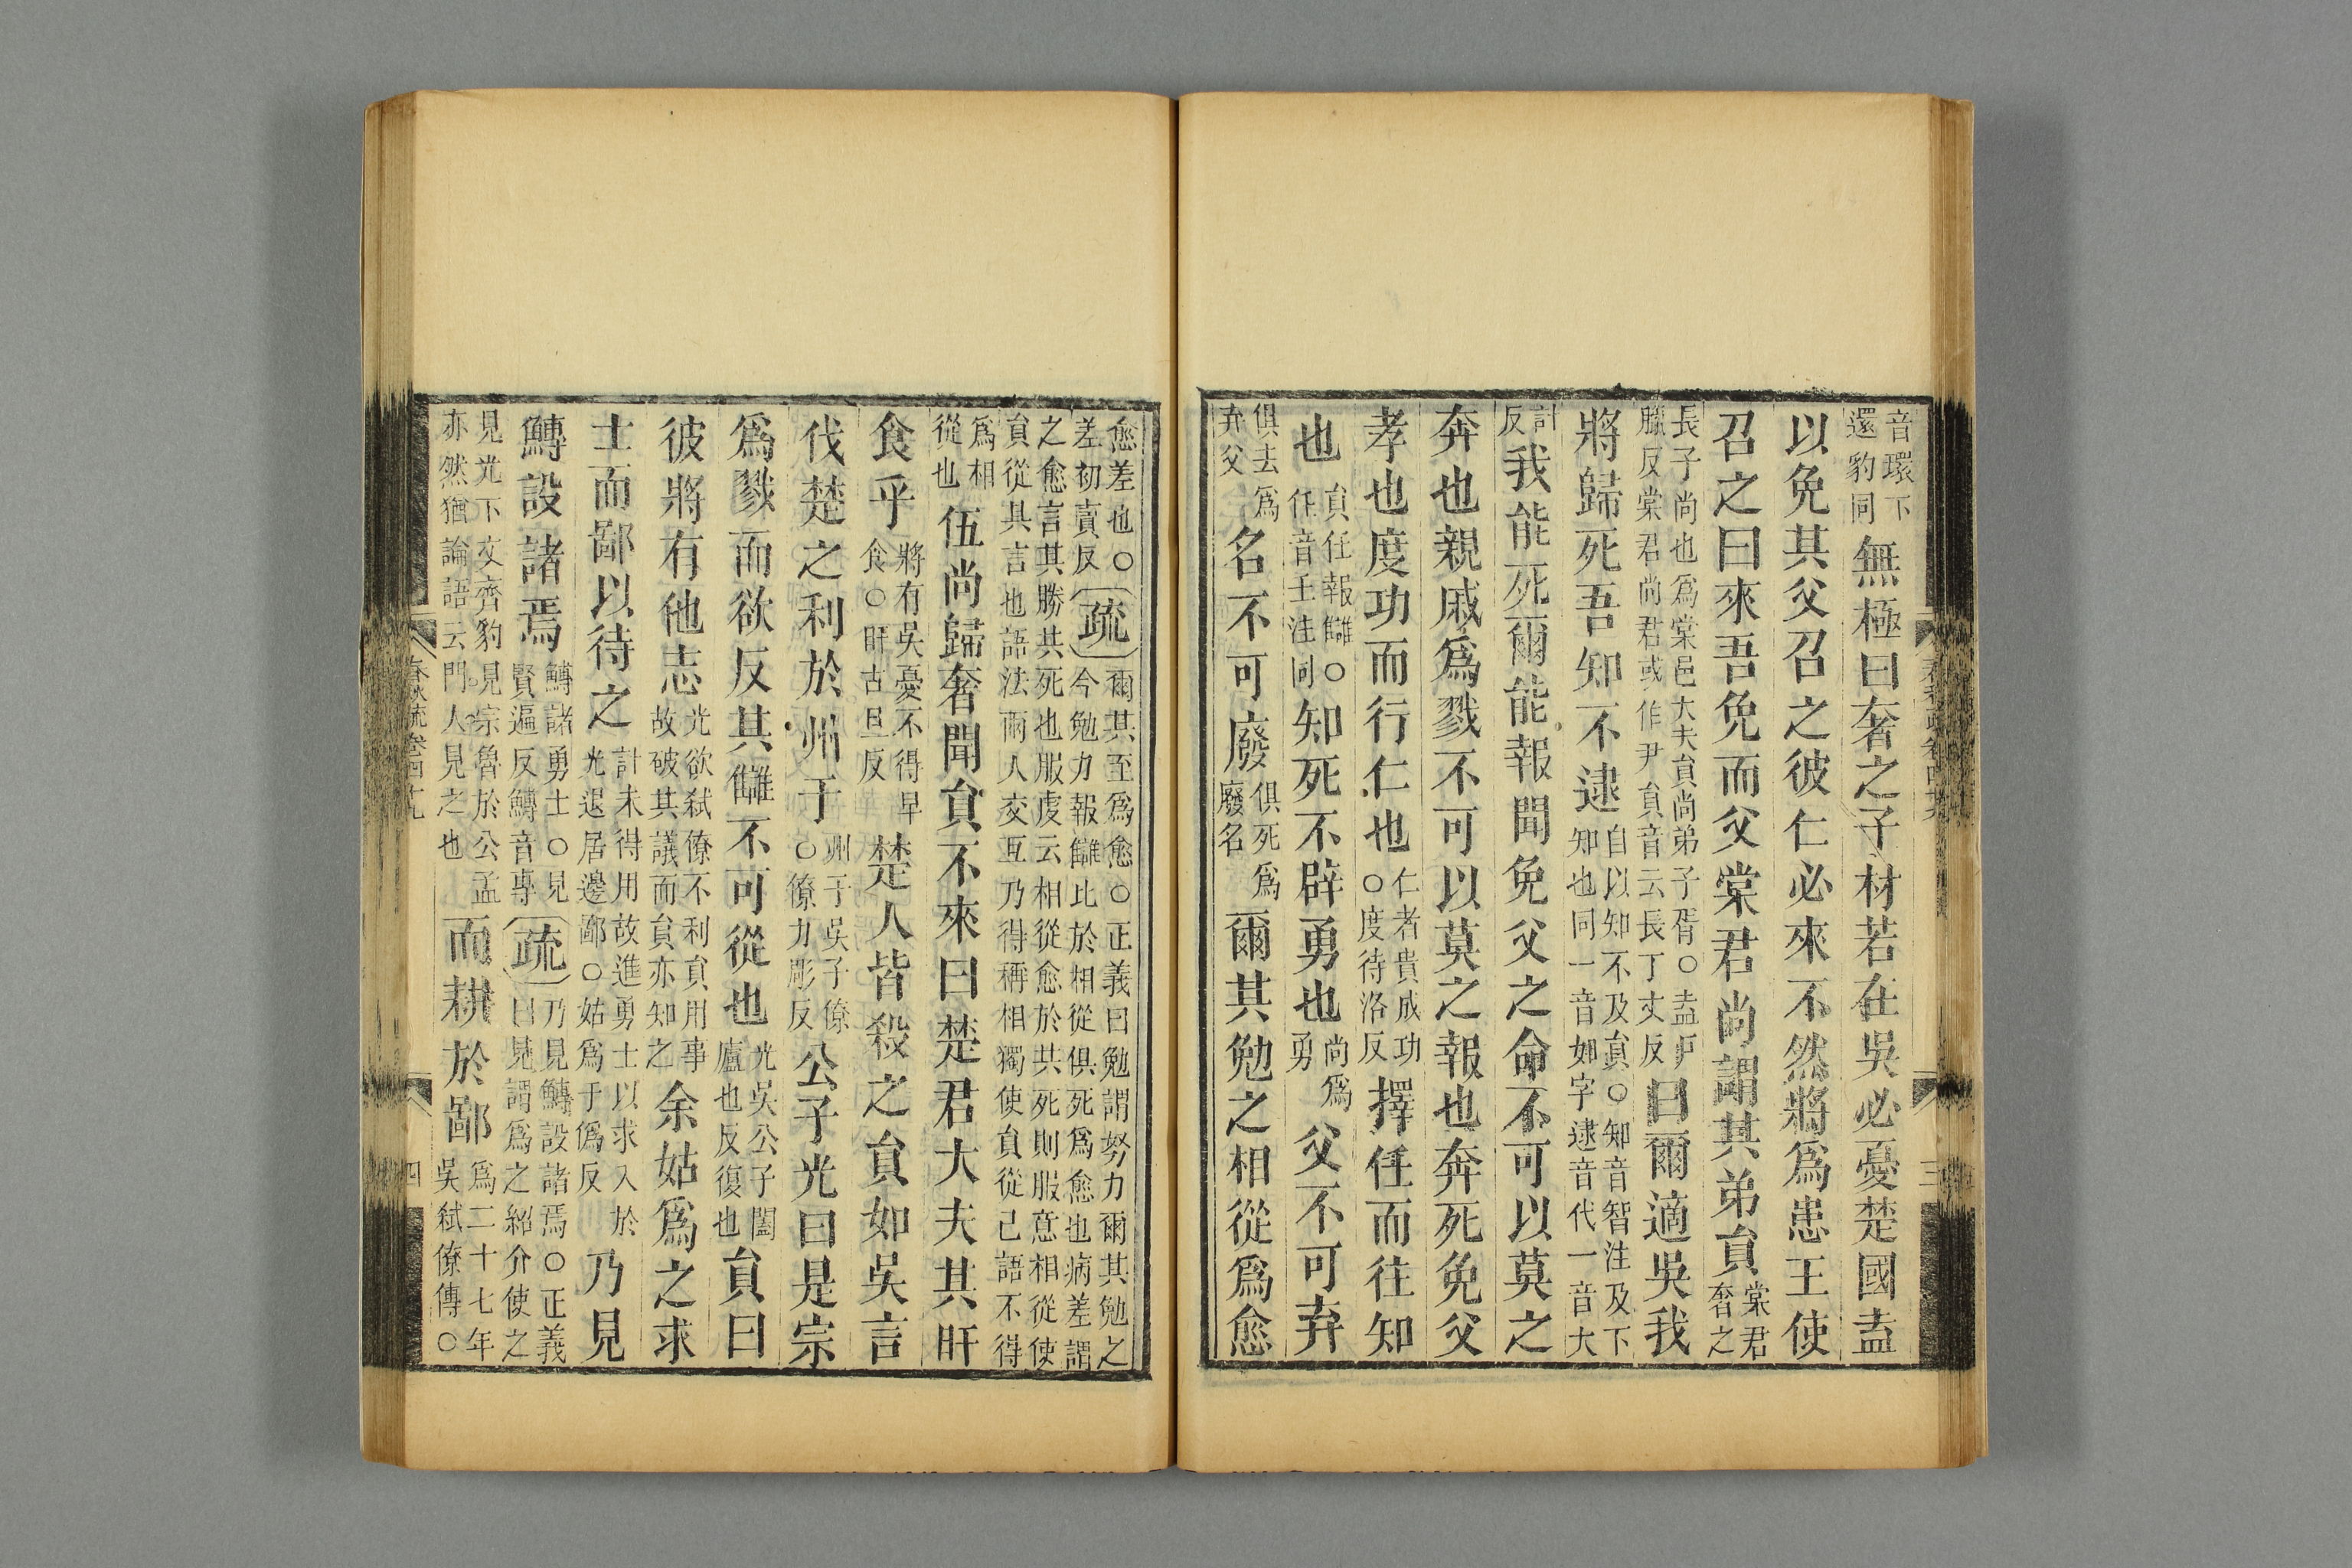 音環下
還豹同
無極曰奢之子材若在吳必憂楚國盍
以免其父召之彼仁必來不然將爲患王使
召之曰來吾免而父棠君尚謂其弟員
棠君
奢之
長子尚也爲棠邑大夫員尚弟子胥○盍戸
臘反棠君尚君或作尹員音云長丁丈反
曰爾適吳我
將歸死吾知不逮
自以知不及員○知音智注及下
知也同一音如字逮音代一音大
計
反
我能死爾能報聞免父之命不可以莫之
奔也親戚爲戮不可以莫之報也奔死免父
孝也度功而行仁也
仁者貴成功
○度待洛反
擇任而往知
也
員任報讎○
任音壬注同
知死不辟勇也
尚爲
勇
父不可弃
俱去爲
弃父
名不可廢
俱死爲
廢名
爾其勉之相從爲愈
春秋疏卷四十九
三
愈差也○
差初賣反
疏
爾其至爲愈○正義曰勉謂努力爾其勉之
今勉力報讎比於相從俱死爲愈也病差謂
之愈言其勝共死也服虔云相從愈於共死則服意相從使
員從其言也語法兩人交互乃得稱相獨使員從己語不得
爲相
從也
伍尚歸奢聞員不來曰楚君大夫其旰
食乎
將有吳憂不得早
食○旰古旦反
楚人皆殺之員如吳言
伐楚之利於州于
州于吳子僚
○僚力彫反
公子光曰是宗
爲戮而欲反其讎不可從也
光吳公子闔
廬也反復也
員曰
彼將有他志
光欲弒僚不利員用事
故破其議而員亦知之
余姑爲之求
士而鄙以待之
計未得用故進勇士以求入於
光退居邊鄙○姑爲于僞反
乃見
鱄設諸焉
鱄諸勇士○見
賢遍反鱄音專
疏
乃見鱄設諸焉○正義
曰見謂爲之紹介使之
見光下文齊豹見宗魯於公孟
亦然猶論語云門人見之也
而耕於鄙
爲二十七年
吳弒僚傳○
春秋疏卷四十九
四